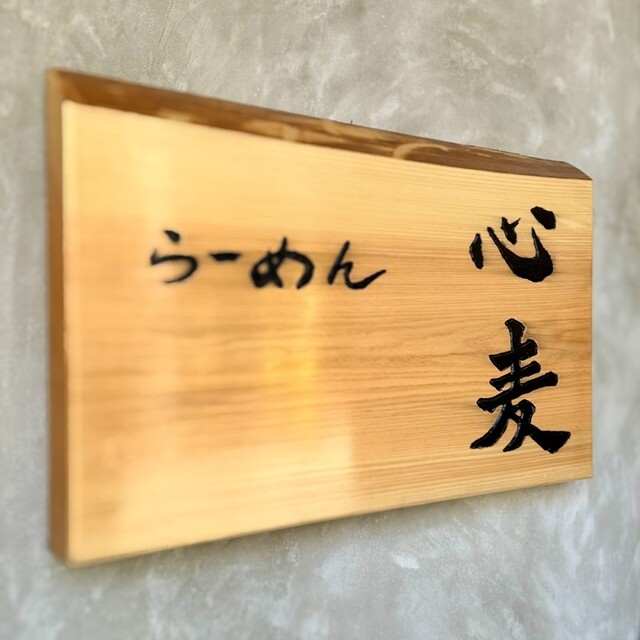 らーめん
心麦